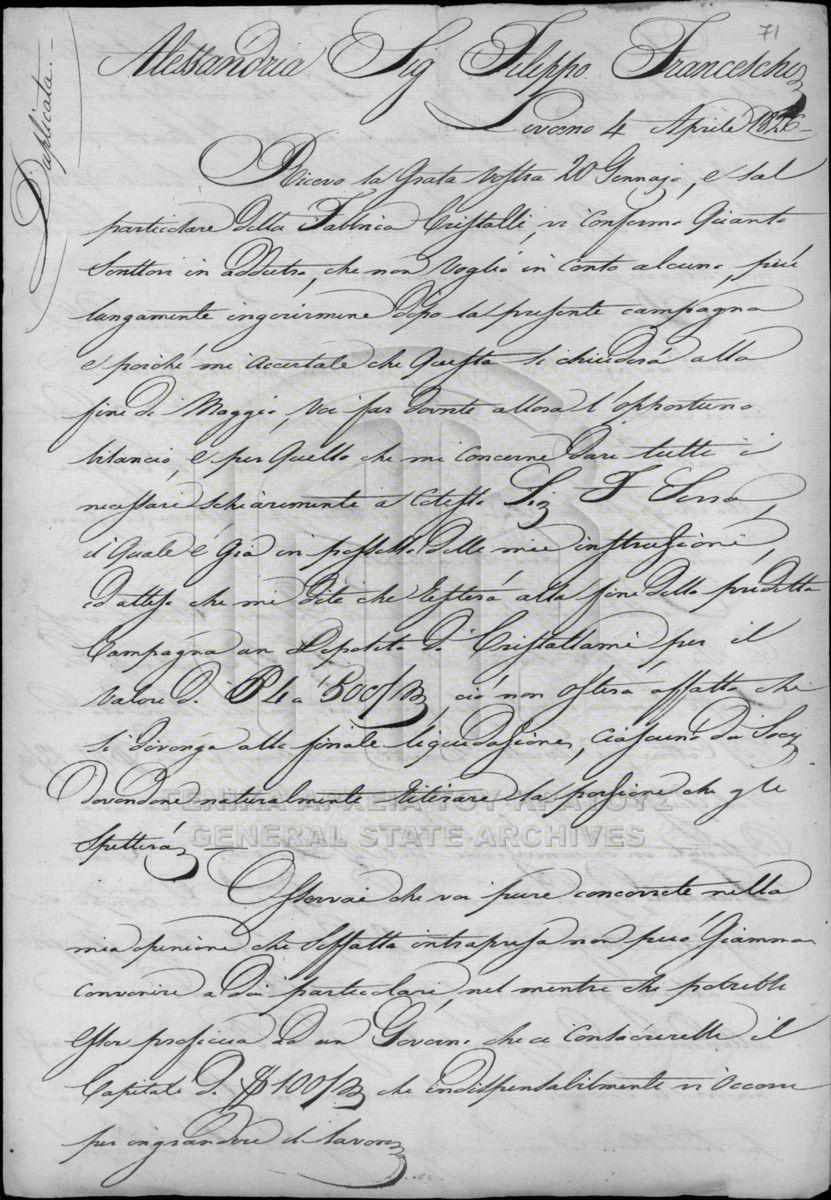 71
Duplicata.
Alessandria Sig Filippo Franceschi
Livorno 4 Aprile 1826
Ricevo la grata vostra 20 Gennajo, e sul
particolare della Fabbrica Cristalli, vi confermo quanto
scrittovi in addietro, che non voglio in conto alcuno, più
lungamente ingerirmene dopo la presente campagna
e poiché mi accertate che questa si chiuderà alla
fine di Maggio, voi far dovrete allora l'opportuno
bilancio, e per quello che mi concerne dare tutti i
necessari schiarimenti a cotesto Sig
il quale è già in possesso delle mie instruzioni,
ed atteso che mi dite che resterà alla fine della predetta
Campagna un Deposito di Cristallami per il
valore di 4 a 500/m, ciò non osterà affatto che
si divenga alla finale liquidazione, ciascuno dei Socj
dovendone naturalmente ritirare la porzione che gli
spetterà
ΓΕΝΙΚΑ ΑΡΧΕΙΑ ΤΟΥ ΚΡΑΤΟΥΣ
GENERAL STATE ARCHIVES
Osservai che voi pure concorrete nella
mia opinione che siffatta intrapresa non può giammai
convenire a dei particolari, nel mentre che potrebbe
esser proficua ad un Governo che ci consacrerebbe il
Capitale di $ 100/m che indispensabilmente vi occorre
per ingrandire il lavoro